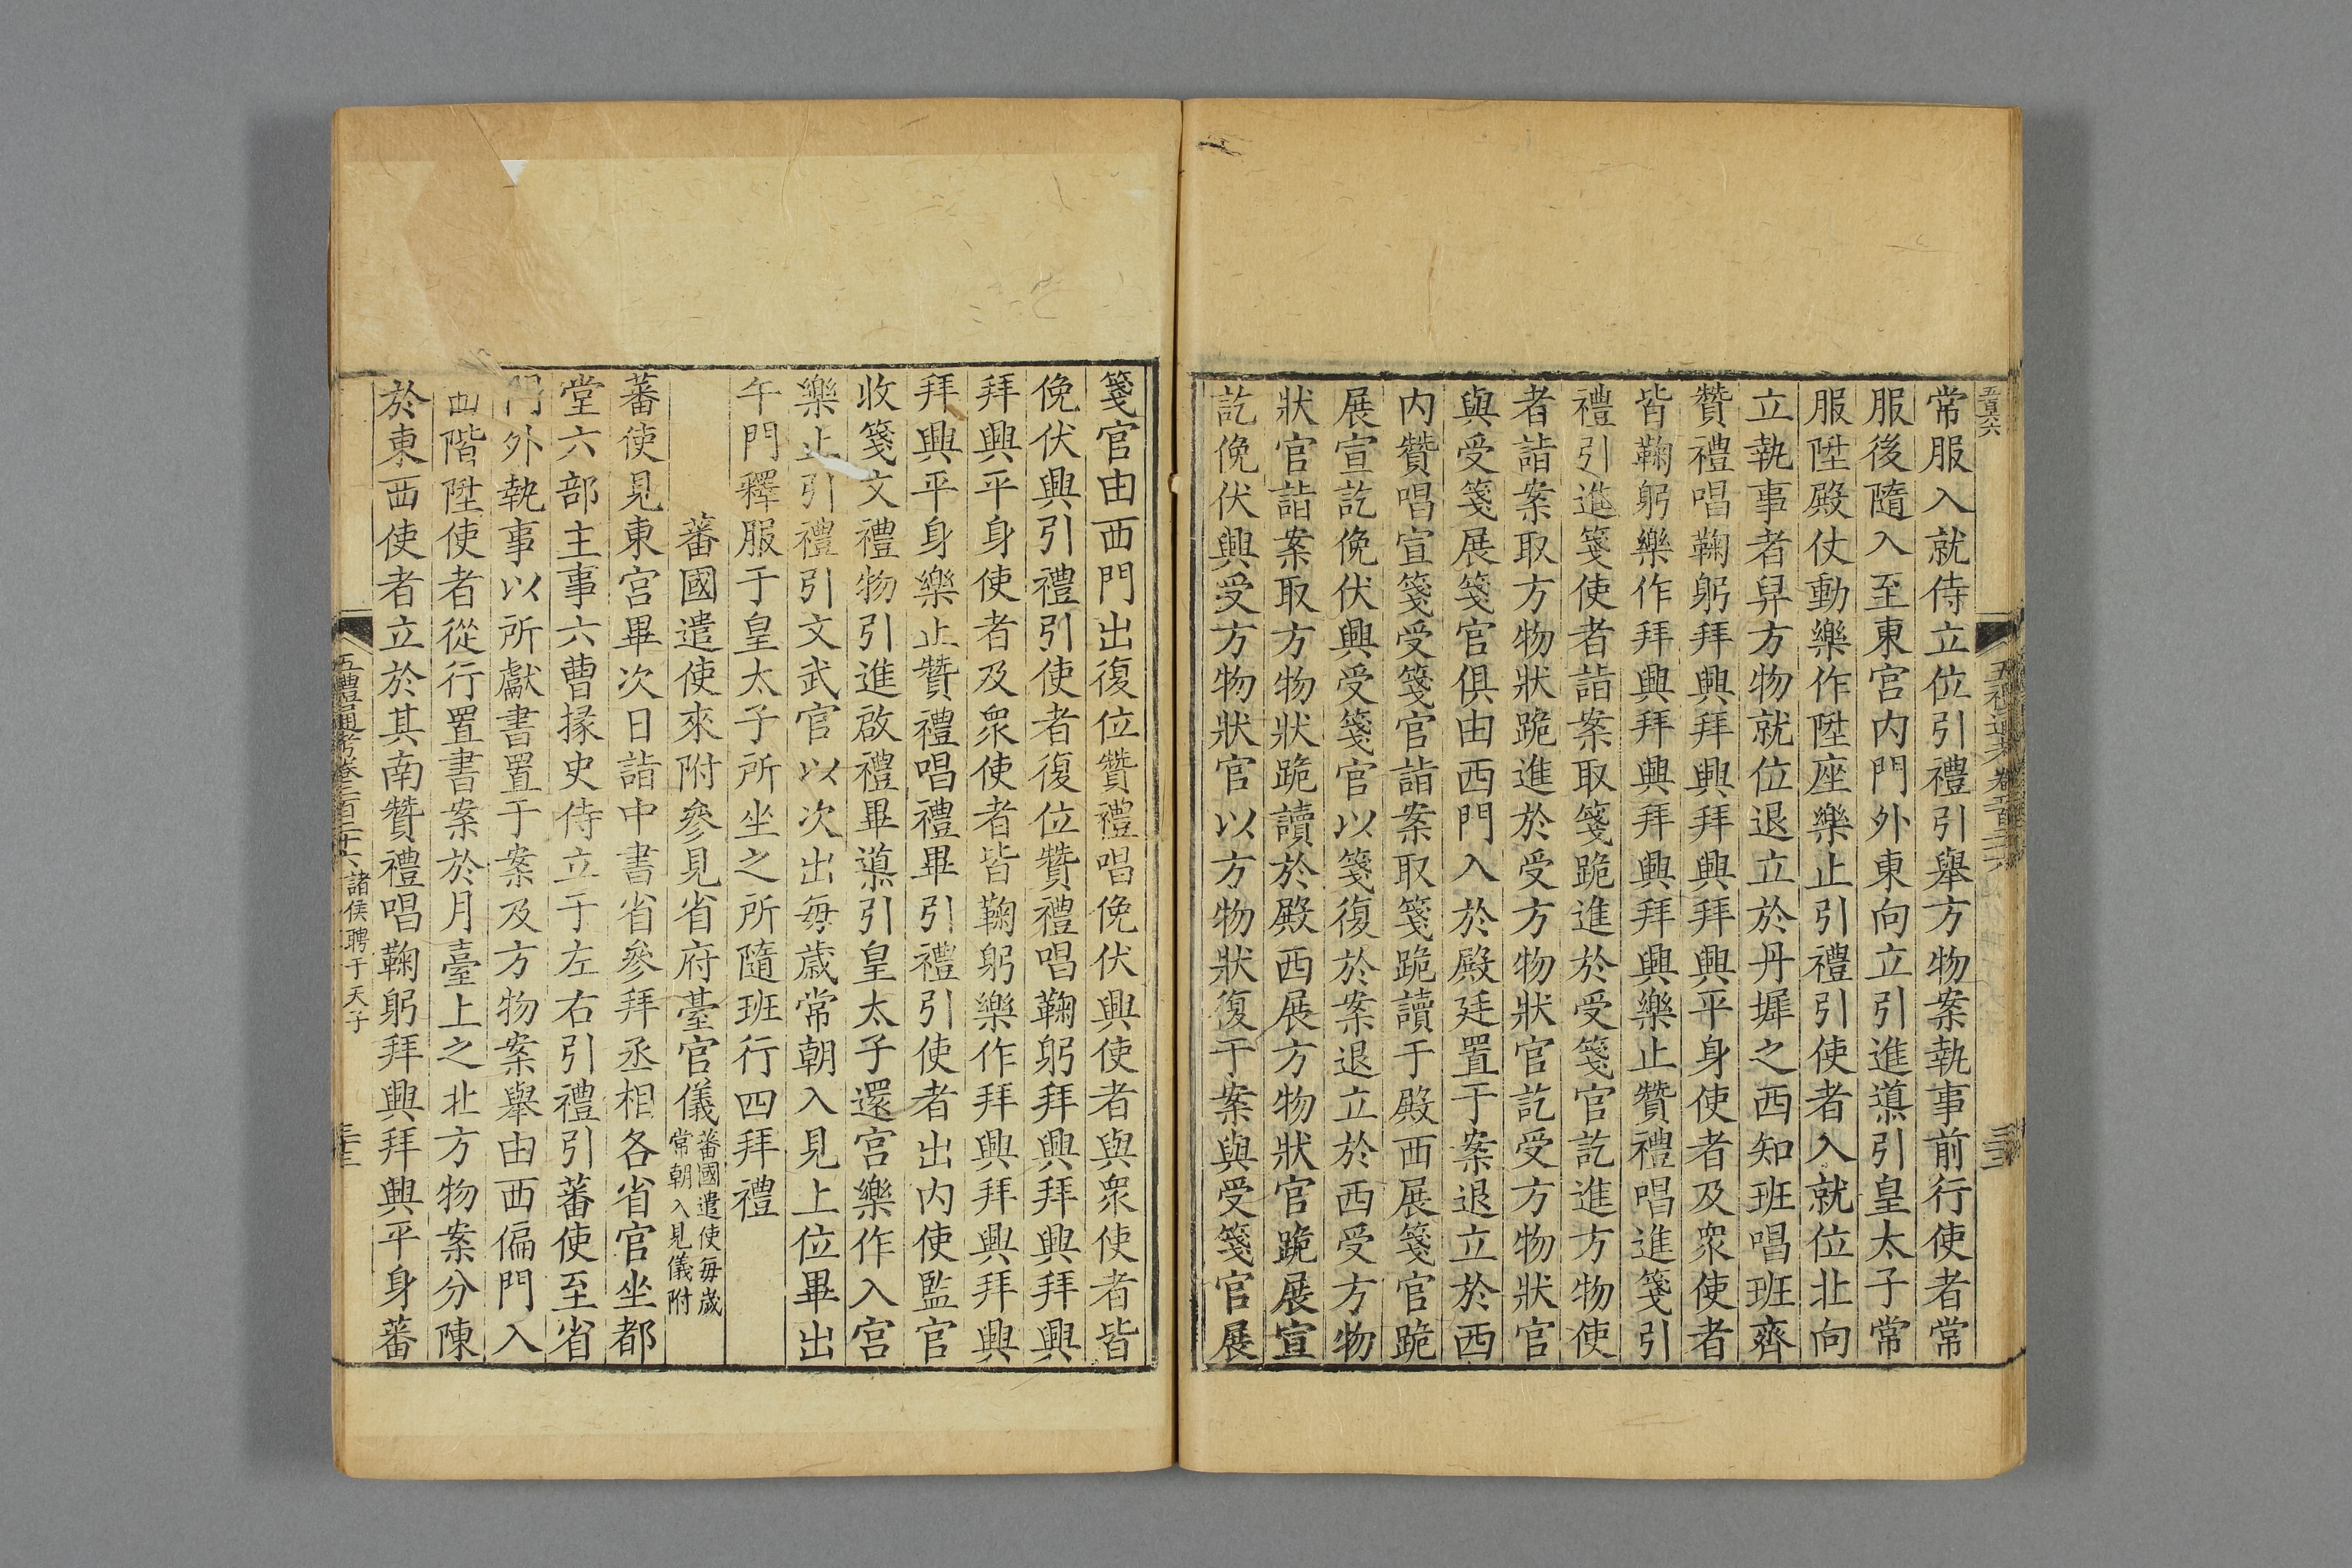 常服入就侍立位引禮引舉方物案執事前行使者常
服後隨入至東宮内門外東向立引進導引皇太子常
服陞殿仗動樂作陞座樂止引禮引使者入就位北向
立執事者舁方物就位退立於丹墀之西知班唱班齊
贊禮唱鞠躬拜興拜興拜興拜興平身使者及衆使者
皆鞠躬樂作拜興拜興拜興拜興樂止贊禮唱進箋引
禮引進箋使者詣案取箋跪進於受箋官訖進方物使
者詣案取方物狀跪進於受方物狀官訖受方物狀官
與受箋展箋官俱由西門入於殿廷置于案退立於西
内贊唱宣箋受箋官詣案取箋跪讀于殿西展箋官跪
展宣訖俛伏興受箋官以箋復於案退立於西受方物
狀官詣案取方物狀跪讀於殿西展方物狀官跪展宣
訖俛伏興受方物狀官以方物狀復于案與受箋官展
箋官由西門出復位贊禮唱俛伏興使者與衆使者皆
俛伏興引禮引使者復位贊禮唱鞠躬拜興拜興拜興
拜興平身使者及衆使者皆鞠躬樂作拜興拜興拜興
拜興平身樂止贊禮唱禮畢引禮引使者出内使監官
收箋文禮物引進啟禮畢導引皇太子還宮樂作入宮
樂止引禮引文武官以次出每歳常朝入見上位畢出
午門釋服于皇太子所坐之所隨班行四拜禮
蕃國遣使來附參見省府臺官儀
蕃國遣使每歳
常朝入見儀附
蕃使見東宮畢次日詣中書省參拜丞相各省官坐都
堂六部主事六曹掾史侍立于左右引禮引蕃使至省
門外執事以所獻書置于案及方物案舉由西偏門入
西階陞使者從行置書案於月臺上之北方物案分陳
於東西使者立於其南贊禮唱鞠躬拜興拜興平身蕃
五禮通考卷二百二十六 諸侯聘于天子